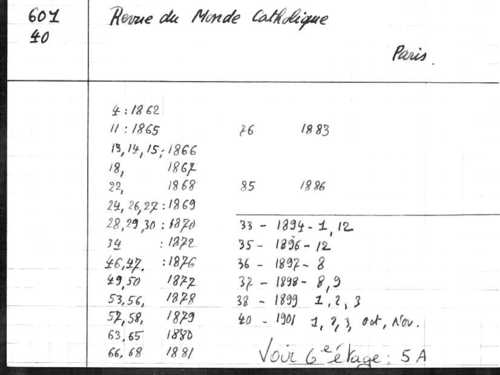 601
40
Revue du Monde Catholique
Paris.
4 : 1862
11 : 1865
13, 14, 15, : 1866
18, 1867
22, 1868
24, 26, 27 : 1869
28, 29, 30 : 1870
34 : 1872
46, 47, : 1876
49, 50 1877
53, 56, 1878
57, 58, 1879
63, 65 1880
66, 68 1881
76 1883
85 1886
33 - 1894 - 1, 12
35 - 1896 - 12
36 - 1897 - 8
37 - 1898 - 8, 9
38 - 1899 1, 2, 3
40 - 1901 1, 2, 3, oct, Nov.
Voir 6e étage : 5A